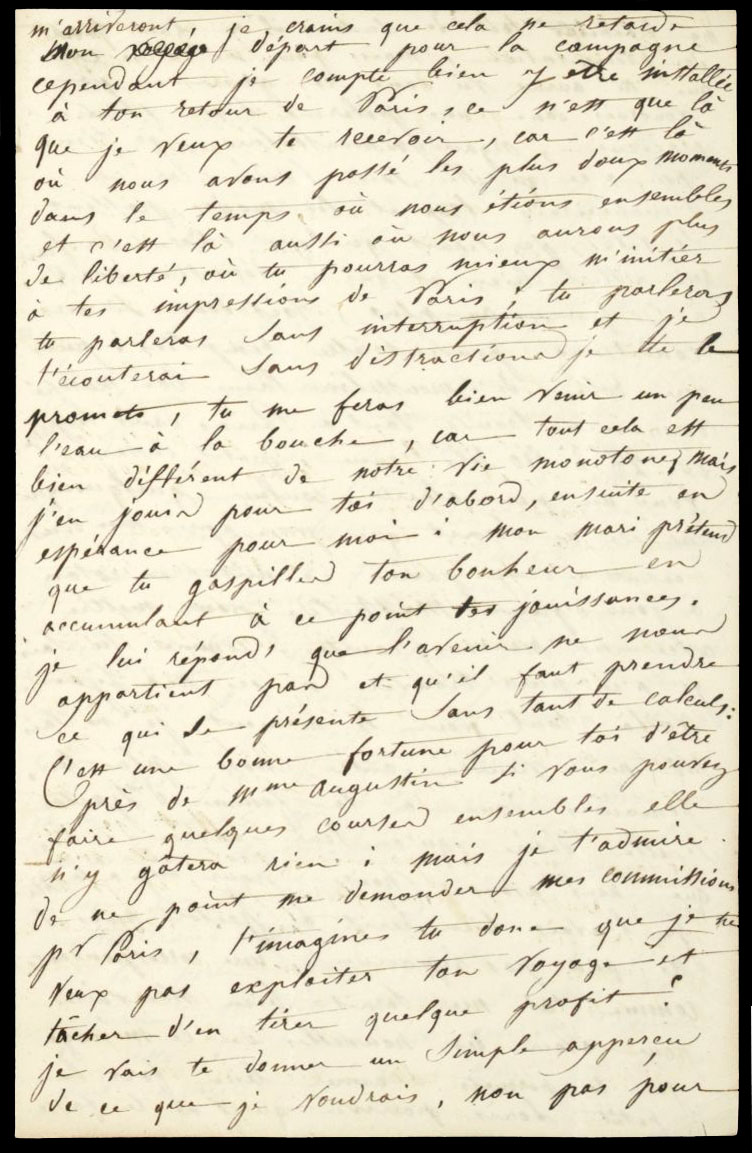 m'arriveront, je crains que cela ne retarde
mon départ pour la campagne
cependant je compte bien y être installée
à ton retour de Paris, ce n'est que là
que je veux te recevoir, car c'est là
où nous avons passé les plus doux moments
dans le temps où nous étions ensembles
et c'est là aussi où nous aurons plus
de liberté, où tu pourras mieux m'initier
à tes impressions de Paris; tu parleras
tu parleras sans interruption et je
t'écouterai sans distraction je te le
promets, tu me feras bien venir un peu
l'eau à la bouche, car tout cela est
bien différent de notre vie monotone; mais
j'en jouis pour toi d'abord, ensuite en
espérance pour moi : mon mari prétend
que tu gaspilles ton bonheur en
accumulant à ce point tes jouissances.
je lui réponds que l'avenir ne nous
appartient pas et qu'il faut prendre
ce qui se présente sans tant de calculs:
C'est une bonne fortune pour toi d'être
près de mme Augustin si vous pouvez
faire quelques courses ensembles elle
n'y gâtera rien : mais je t'admire
de ne point me demander mes commissions
pr Paris, t'imagines tu donc que je ne
veux pas exploiter ton voyage et
tâcher d'en tirer quelque profit?
je vais te donner un simple apperçu
de ce que je voudrais, non pas pour